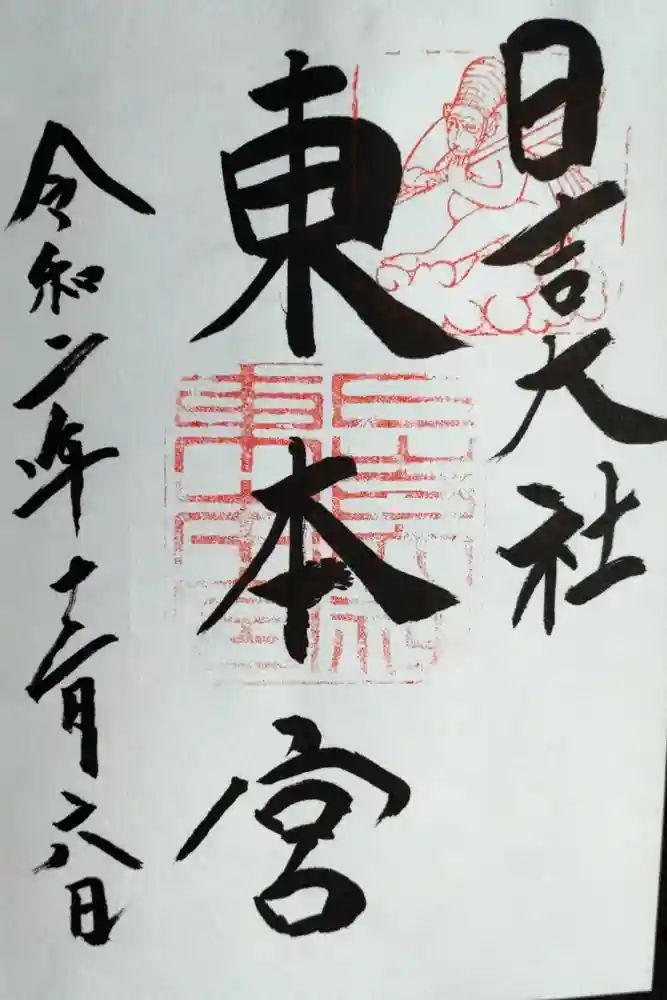 日吉大社
東本宮
令和二年十二月六日